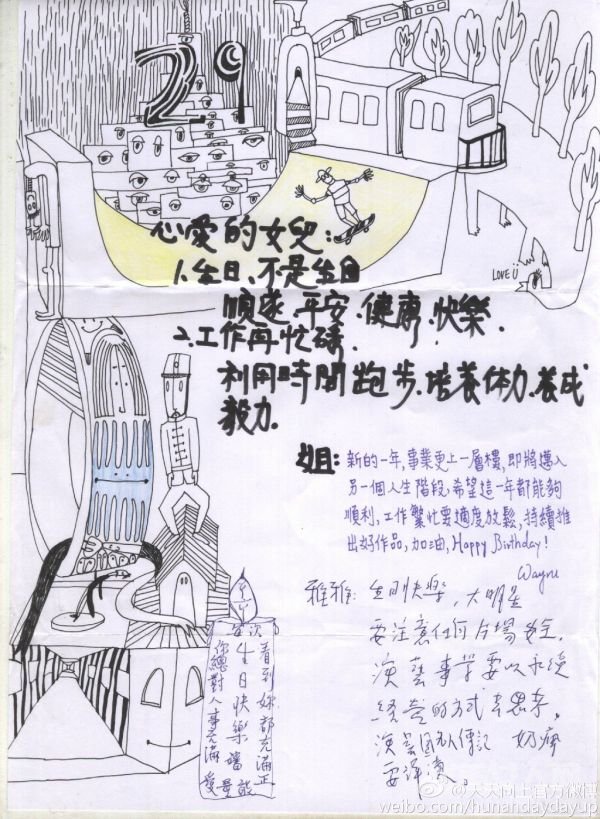 29
心愛的女兒:
1.生日、不是生日
順遂.平安.健康.快樂.
2.工作再忙碌.
利用時間跑步.培養体力.養成
毅力.
LOVE Ü
姐: 新的一年,事業更上一層樓,即將邁入
另一個人生階段,希望這一年都能夠
順利,工作繁忙要適度放鬆,持續推
出好作品,加油,Happy Birthday!
Wayne
雅雅: 生日快樂,大明星
要注意任何片場安全,
演藝事業要以永續
經營的方式去思考.
每次
看到妳都充滿正
生日快樂
你總對人事充滿
@天天向上官方微博
weibo.com/hunandaydayup